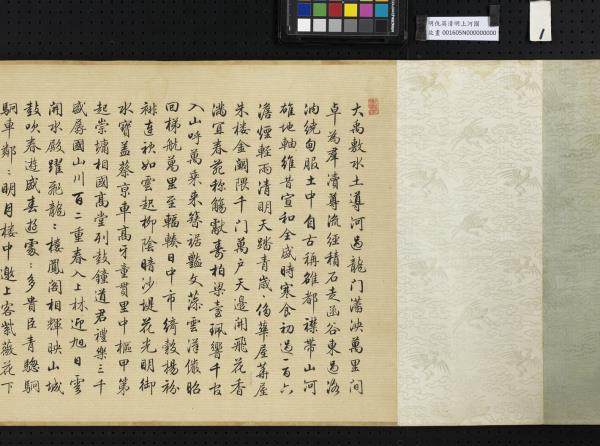 明仇英清明上河圖
故畫 001605N000000000
1
大禹敷水土導河過龍門瀟泱萬里間
卓為羣瀆尊流經積石走函谷東過洛
汭繞甸服土中自古稱雄都襟帶山河
雄地軸維昔宣和全盛時寒食初過一百六
澹煙輕雨清明天踏青歲:傷華屋華屋
朱樓金闕隈千門萬戶天邊開飛花香
滿宜春苑稱觴獻壽柏梁臺珮響千官
入山呼萬乘來簪裾豔文藻雲漢儼昭
回梯航萬里至輻輳日中市綺縠揚袗
裶連袂如雲起柳陰暗沙堤花光明御
水寶蓋蔡京車高牙童貫里中樞甲第
起崇墉相國高堂列鼓鐘道君禮樂三千
盛孱國山川百二重春入上林迎旭日雲
開水殿躍飛龍:樓鳳閣相輝映山城
鼓吹春遊盛春遊處:多貴臣青驄駟
駟車鄰:明月樓中邀上客紫薇花下